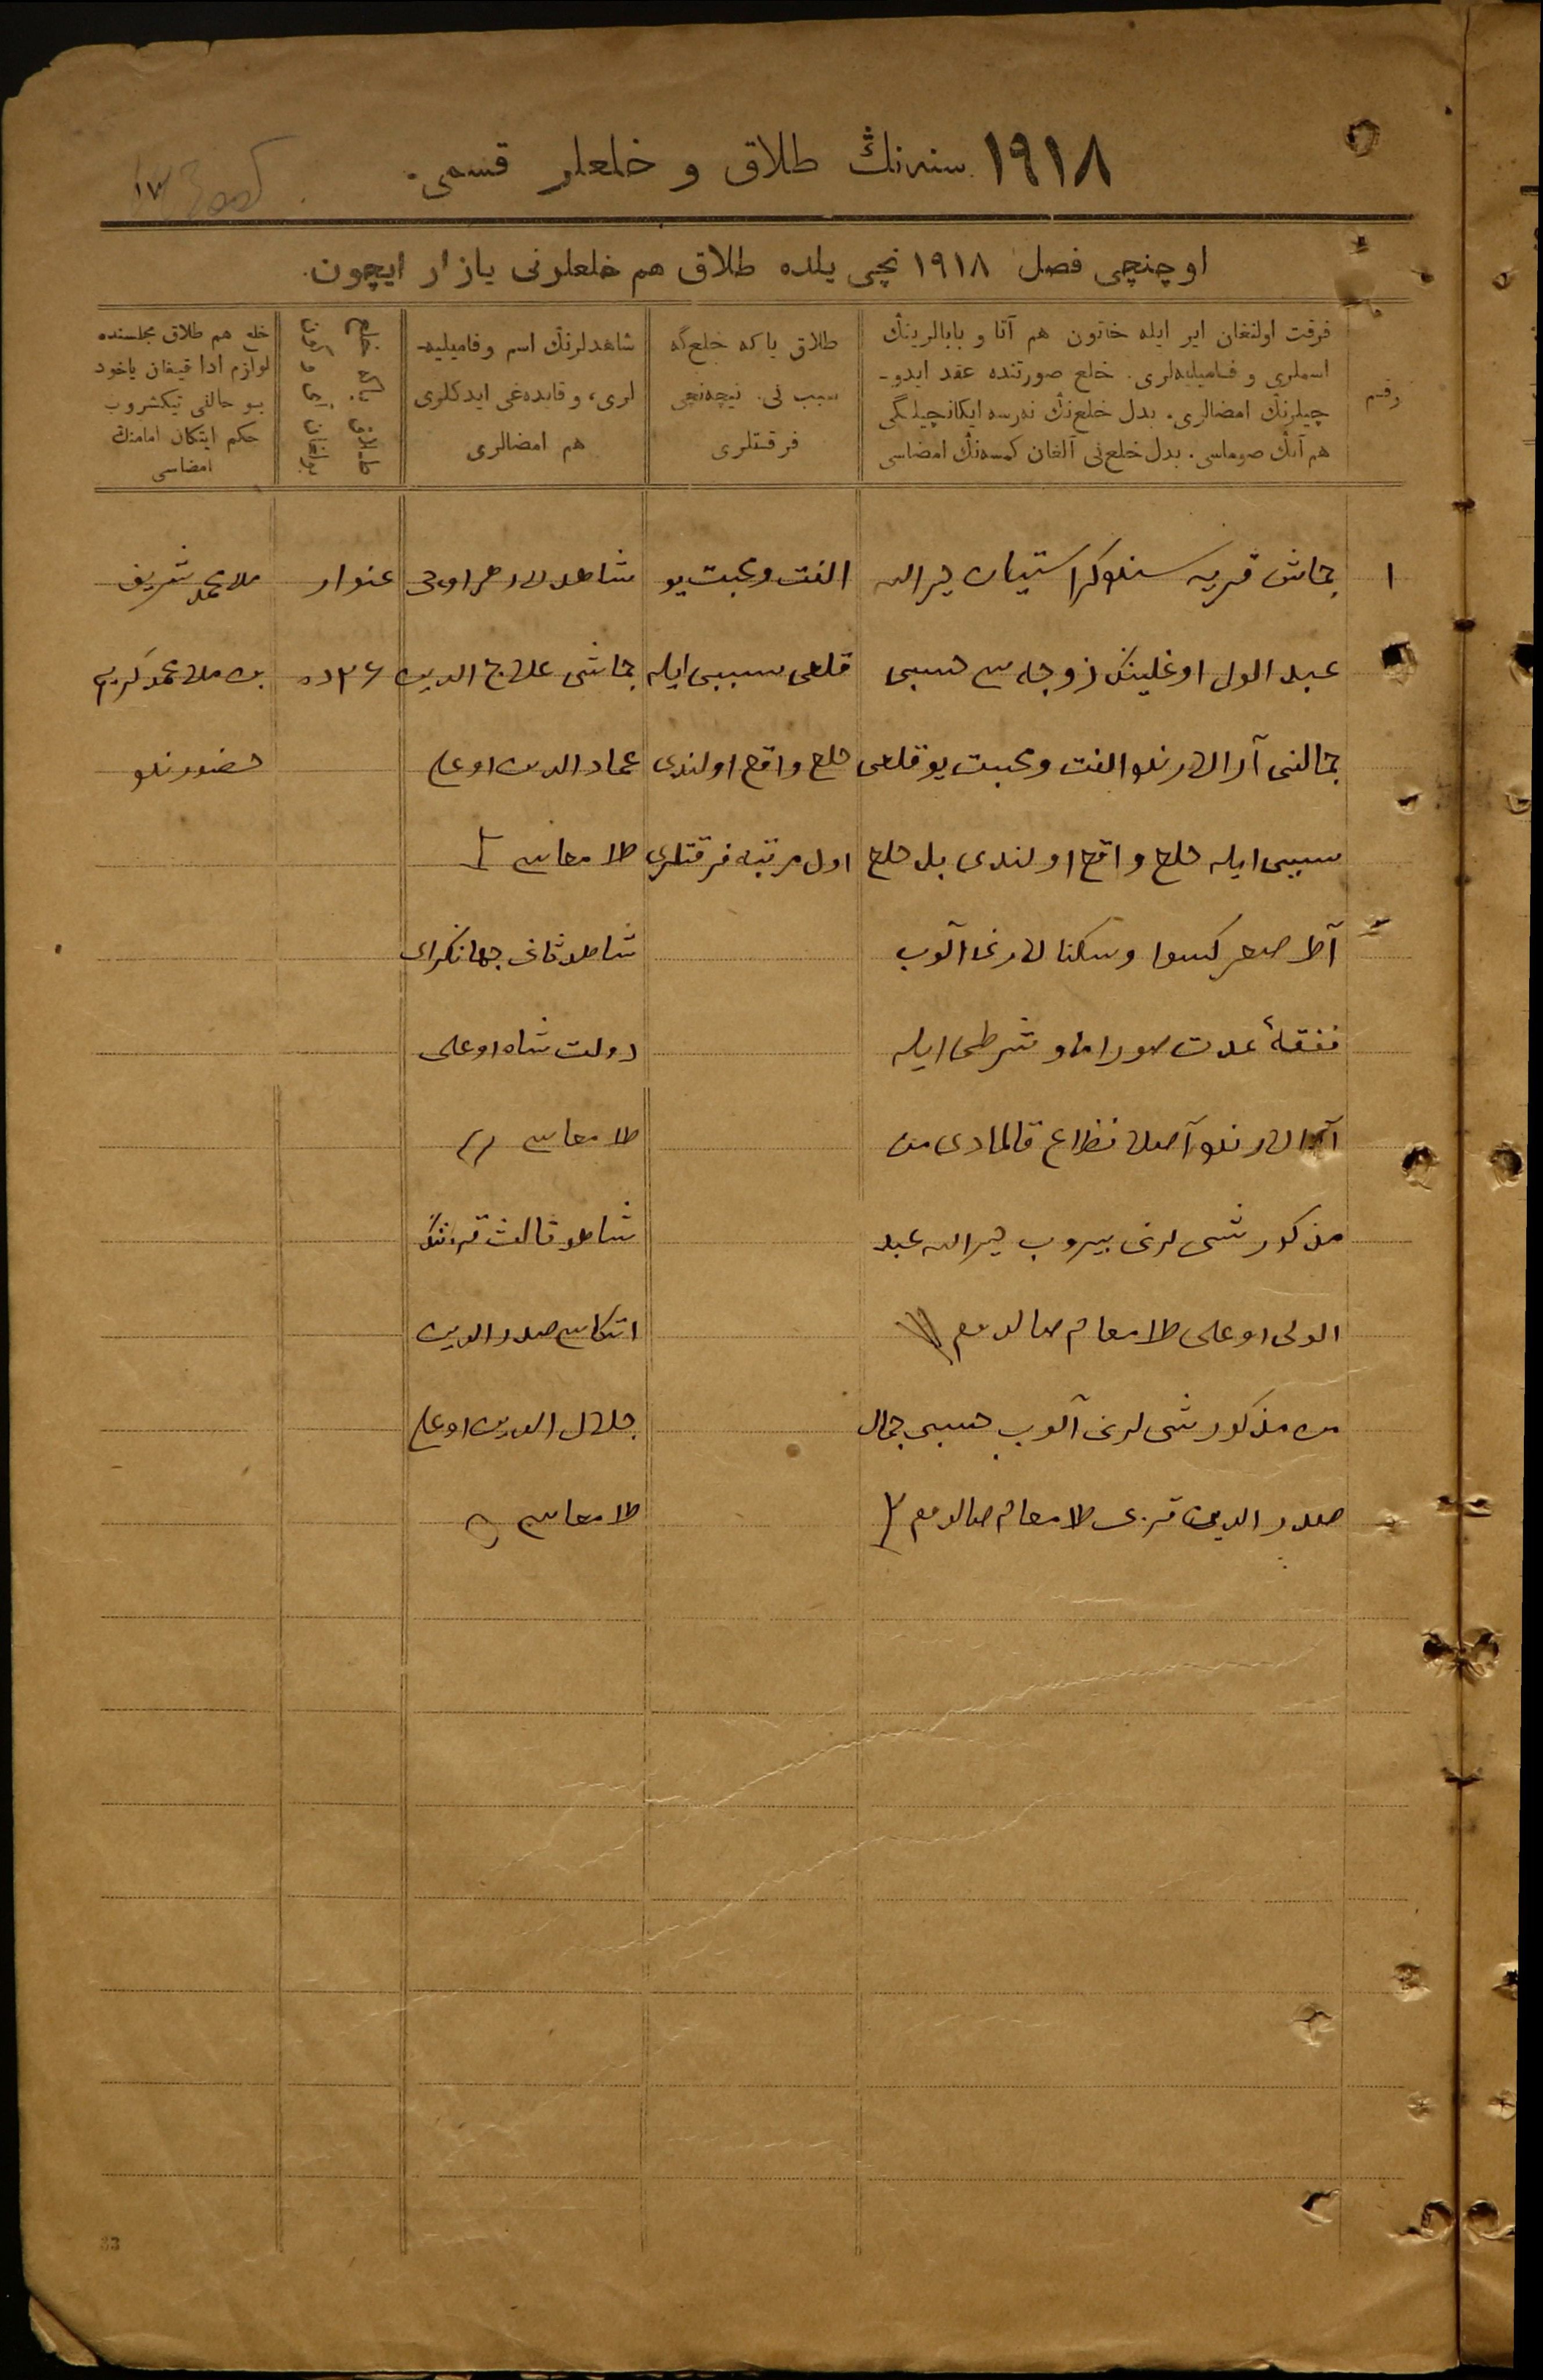 ١٩١٨ سنه‌نڭ طلاق و خلعلر قسمی.
١٣
اوچنچی فصل ١٩١٨ نچی یلده طلاق هم خلعلرنی یازار ایچون.
رقم
فرقت اولنغان ایر ایله خاتون هم آتا و بابالرینڭ
اسملری و فامیلیه‌لری. خلع صورتنده عقد ایدو-
چیلرنڭ امضالری. بدل خلع‌نڭ نه‌رسه ایکانچیلگی
هم آنڭ صوماسی. بدل خلع‌نی آلغان کمسه‌نڭ امضاسی
طلاق یاکه خلع‌گه
سبب نی. نیچه‌نچی
فرقتلری
شاهدلرنڭ اسم وفامیلیه-
لری، و قایده‌غی ایدکلری
هم امضالری
طلاق یاکه خلع
بولغان آی و کون
خلع هم طلاق مجلسنده
لوازم ادا قیغان یاخود
بو حالنی تیکشروب
حکم ایتکان امامنڭ
امضاسی
١
جماش قریه سنده
عبد الولی اوغلینڭ زوجه سی حسبی
جمالنی آرالارنده الفت ومحبت یوقلغی
سببی ایله خلع واقع اولندی بدل خلع
آلوب
نفقهٔ عدت صوراماو شرطی ایله
آرالارنده آصلا نظاع قالمادی من
مذکور شی لرنی بیروب خیرالله عبد
الولی اوغلی طامغام صالدم
من مذکور شی لرنی آلوب حسبی جمال
صدر الدین قزی طامغام صالدم
الفت ومحبت یو
قلغی سببی ایله
خلع واقع اولندی
اول مرتبه فرقتلری
شاهدلار
جماشی علاج الدین
عماد الدین اوغلی
طامغاسی
شاهد ثانی جهانکرای
دولت شاه اوغلی
طامغاسی
شاهد ثالث قزنڭ
اتکاسی صدر الدین
جلال الدین اوغلی
طامغاسی
غنوار
٢٦ ده
ملا محمد شریف
بن ملا محمد کریم
حضورنده
33